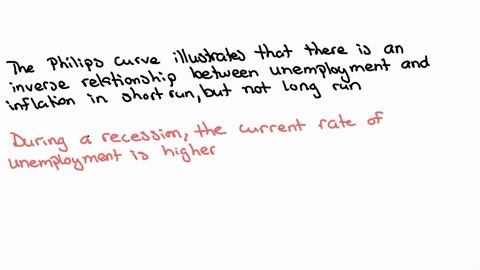 The Philips curve illustrates that there is an
inverse relationship between unemployment and
inflation in short run, but not long run
During a recession, the current rate of
unemployment is higher